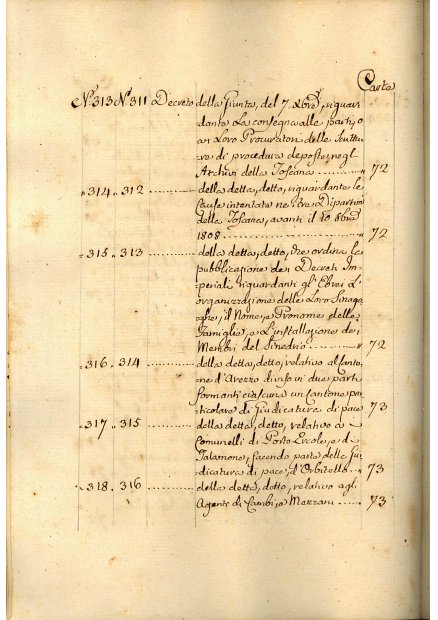 Carta
N.° 313 N.° 311 Decreto della Giunta, del 7 Xbre, riguar
dante La consegna alle parti, o
ai Loro Procuratori delle Scrittu
re di procedura deposte, negl
Archivi della Toscana ......... 72
" 314 " 312 .......... della detta, detto, riguardante le
Cause intentate ne' tre Dipartim
della Toscana, avanti il 10 8bre
1808 .............................. 72
" 315 " 313 .......... della detta, detto, che ordina la
pubblicazione dei Decreti Im-
periali riguardanti gl'Ebrei L'
organizzazione delle Loro Sinago
ghe, il Nome, e Pronome delle
Famiglie, e L'installazione dei
Membri del Sinedrio ......... 72
" 316 " 314 .......... della detta, detto, relativo al Canto-
ne d'Arezzo diviso in due parti
formanti ciascuna un Cantone par
ticolare di Giudicatura di pace 73
" 317 " 315 .......... della detta, detto, relativo a
Comunelli di Porto Ercole, e di
Talamone, facendo parte delle Giu
dicatura di pace, d'Orbitello .. 73
" 318 " 316 .......... della detta, detto, relativo agli
Agenti di Cambi, e Mezzani ..... 73